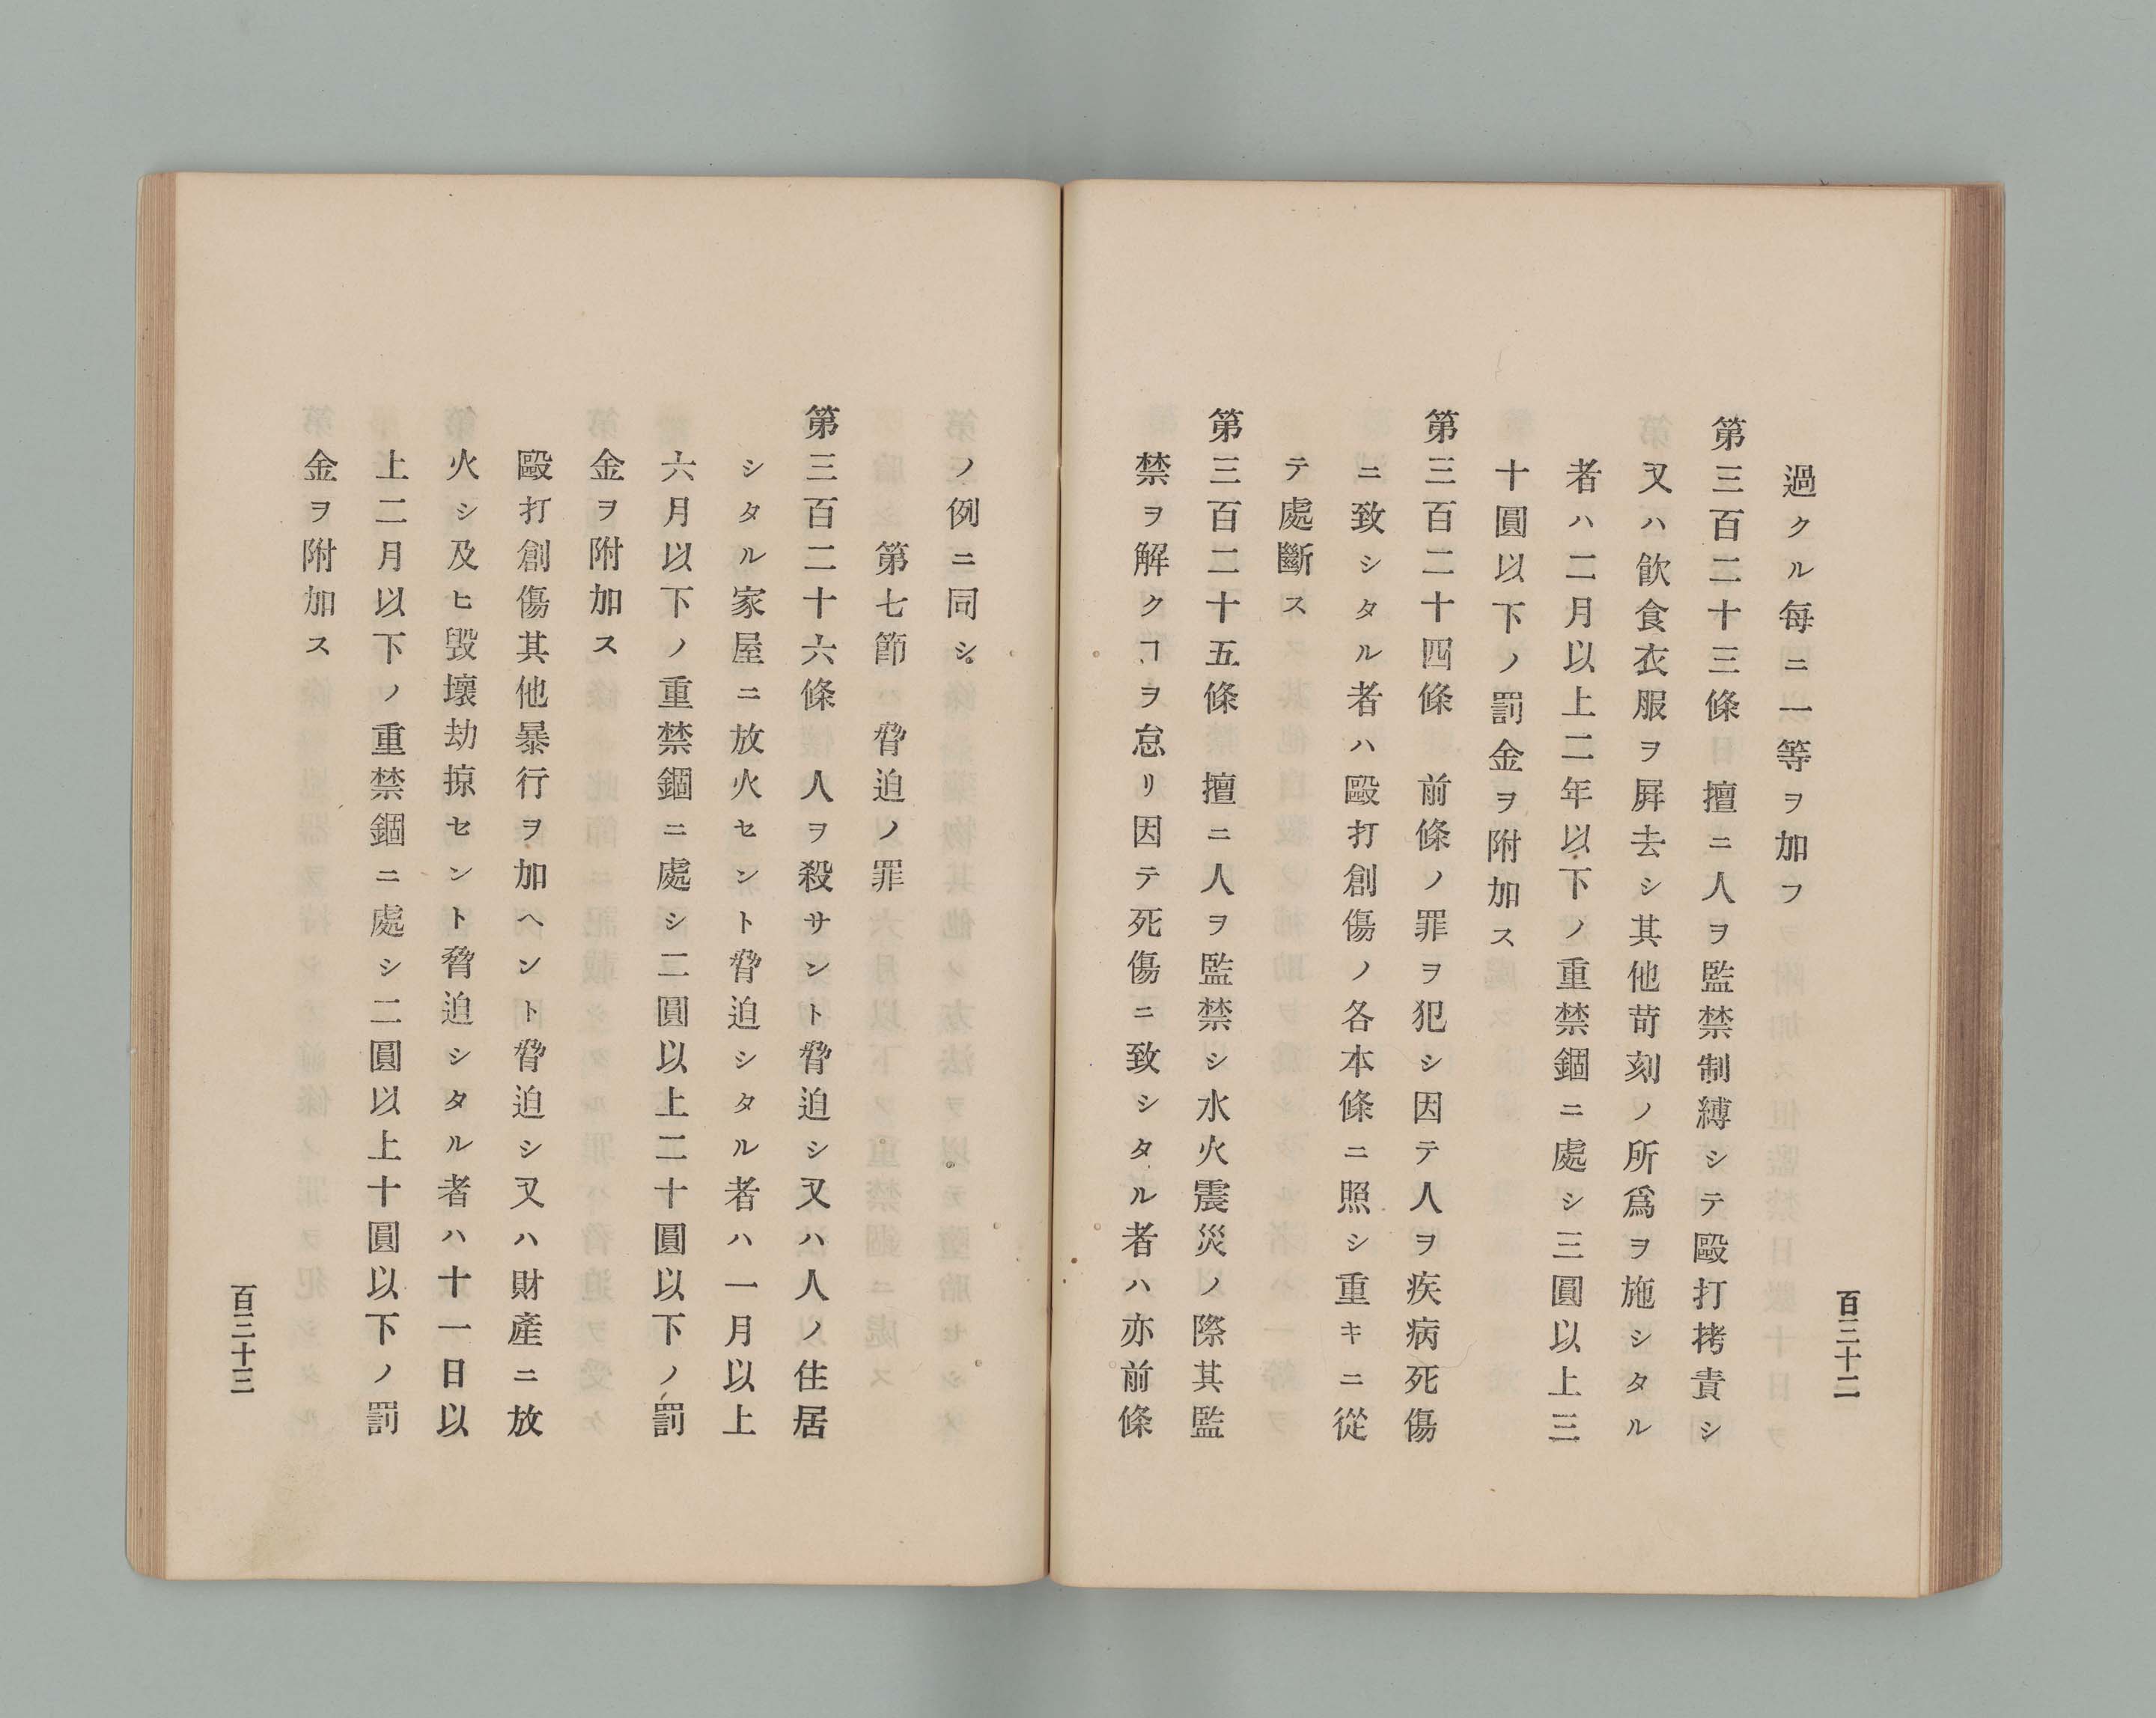 過クル每ニ一等ヲ加フ
第三百二十三條　擅ニ人ヲ監禁制縛シテ毆打拷責シ
又ハ飮食衣服ヲ屛去シ其他苛刻ノ所爲ヲ施シタル
者ハ二月以上二年以下ノ重禁錮ニ處シ三圓以上三
十圓以下ノ罰金ヲ附加ス
第三百二十四條　前條ノ罪ヲ犯シ因テ人ヲ疾病死傷
ニ致シタル者ハ毆打創傷ノ各本條ニ照シ重キニ從
テ處斷ス
第三百二十五條　擅ニ人ヲ監禁シ水火震災ノ際其監
禁ヲ解クヿヲ怠リ因テ死傷ニ致シタル者ハ亦前條
百三十二
ノ例ニ同シ
第七節　脅迫ノ罪
第三百二十六條　人ヲ殺サント脅迫シ又ハ人ノ住居
シタル家屋ニ放火セント脅迫シタル者ハ一月以上
六月以下ノ重禁錮ニ處シ二圓以上二十圓以下ノ罰
金ヲ附加ス
毆打創傷其他暴行ヲ加ヘント脅迫シ又ハ財產ニ放
火シ及ヒ毀壞劫掠セント脅迫シタル者ハ十一日以
上二月以下ノ重禁錮ニ處シ二圓以上十圓以下ノ罰
金ヲ附加ス
百三十三